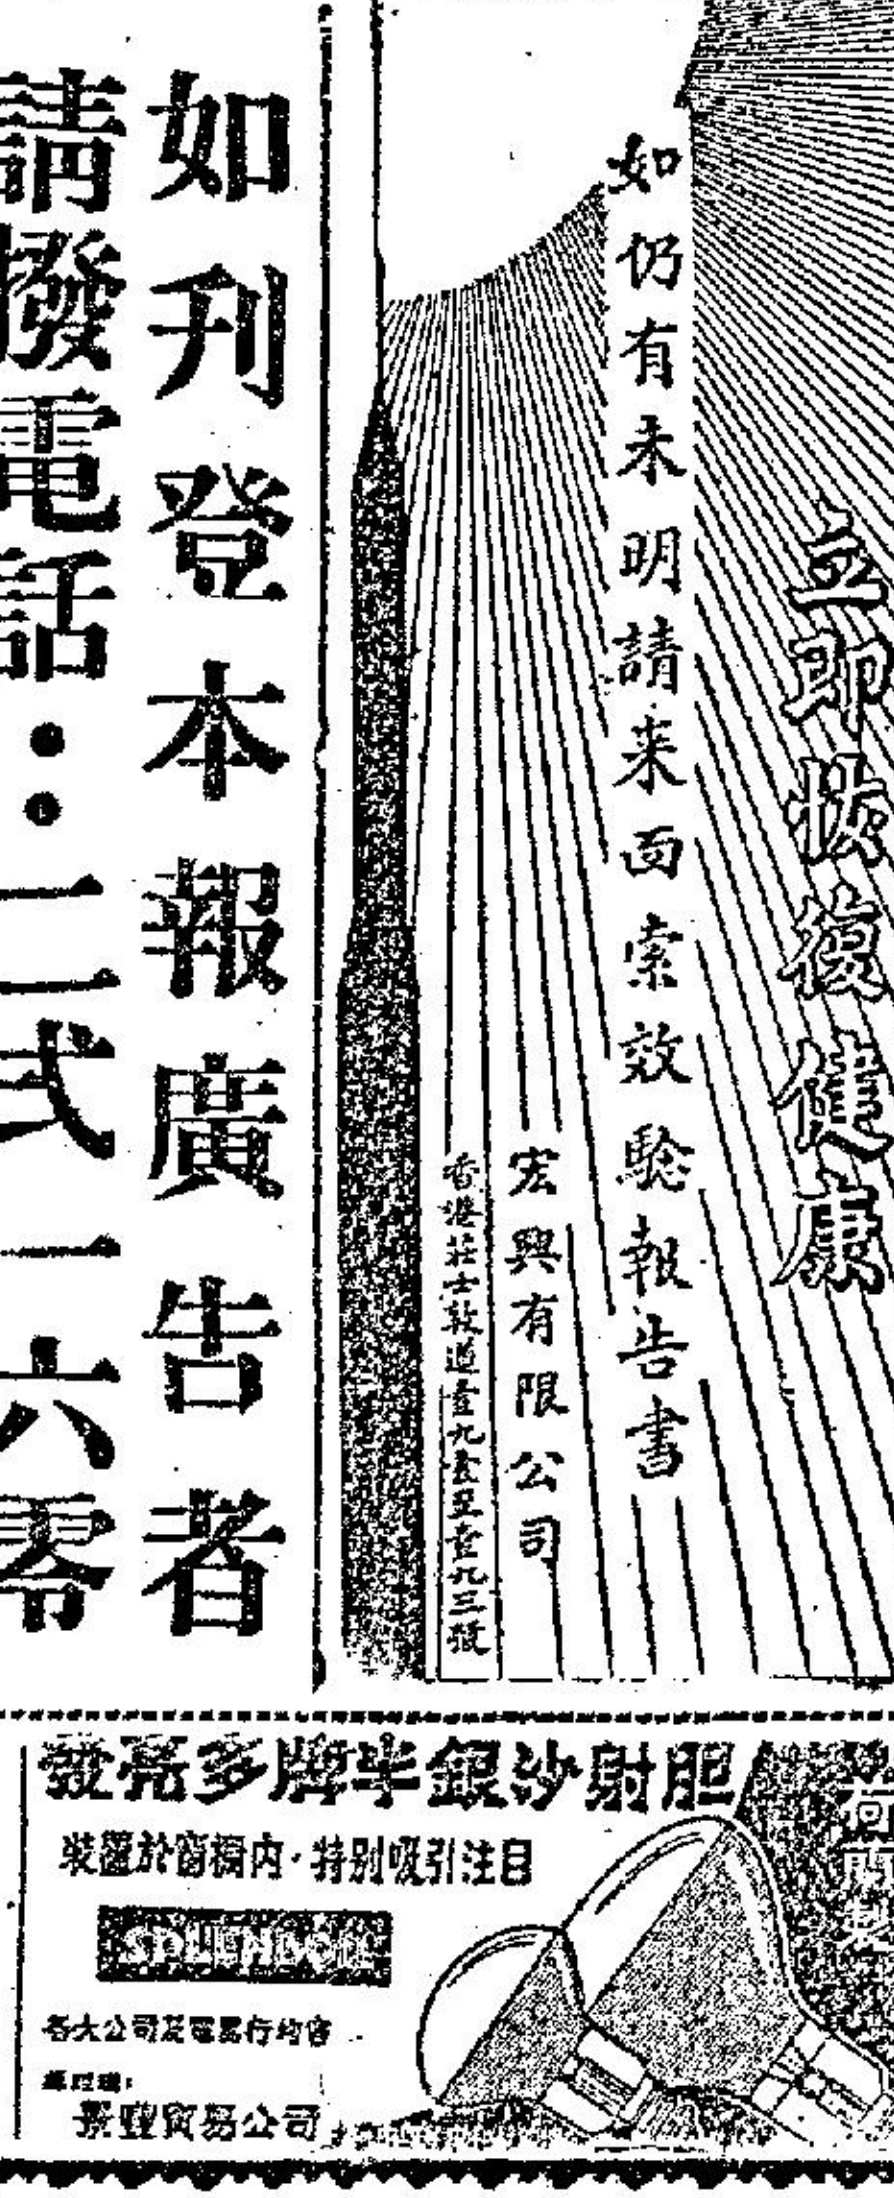 立即恢復健康
如仍有未明請来面索效驗報告書
宏興有限公司
香港莊士敦道壹九壹至壹九三號
如刊登本報廣告者
請撥電話：二式一六零
發亮多牌半銀沙射胆
荷蘭製
裝置於窗櫥内·特别吸引注目
SPLENDOR
各大公司及電器行均售
總經理：
景豐貿易公司